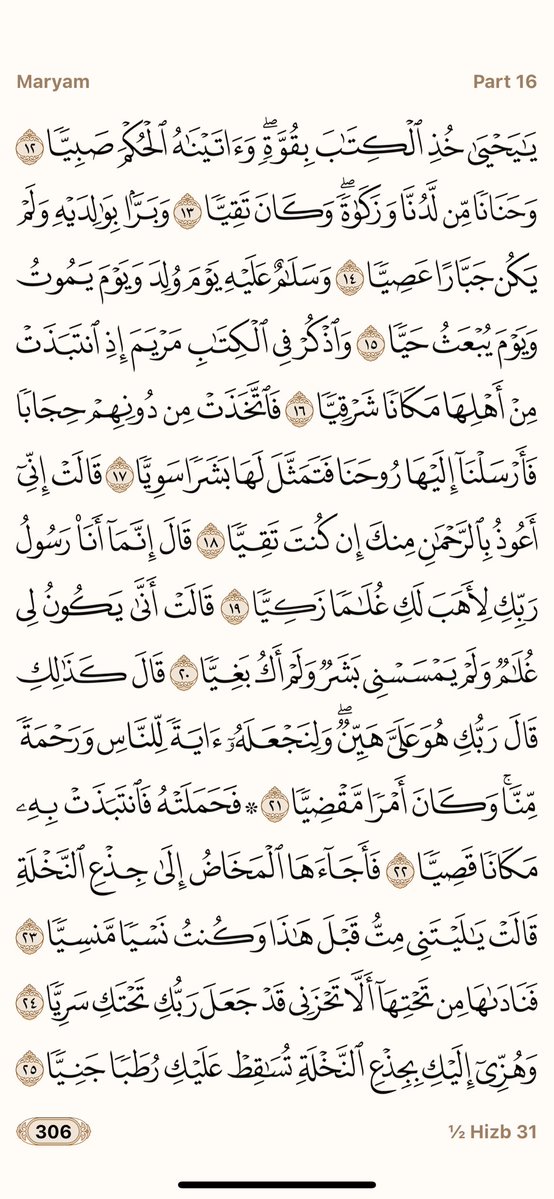 Maryam Part 16
يَـٰيَحۡيَىٰ خُذِ ٱلۡكِتَـٰبَ بِقُوَّةࣲۖ وَءَاتَيۡنَـٰهُ ٱلۡحُكۡمَ صَبِيࣰّا ١٢
وَحَنَانࣰا مِّن لَّدُنَّا وَزَكَوٰةࣰۖ وَكَانَ تَقِيࣰّا ١٣ وَبَرَّۢا بِوَٰلِدَيۡهِ وَلَمۡ
يَكُن جَبَّارًا عَصِيࣰّا ١٤ وَسَلَـٰمٌ عَلَيۡهِ يَوۡمَ وُلِدَ وَيَوۡمَ يَمُوتُ
وَيَوۡمَ يُبۡعَثُ حَيࣰّا ١٥ وَٱذۡكُرۡ فِی ٱلۡكِتَـٰبِ مَرۡيَمَ إِذِ ٱنتَبَذَتۡ
مِنۡ أَهۡلِهَا مَكَانࣰا شَرۡقِيࣰّا ١٦ فَٱتَّخَذَتۡ مِن دُونِهِمۡ حِجَابࣰا
فَأَرۡسَلۡنَاۤ إِلَيۡهَا رُوحَنَا فَتَمَثَّلَ لَهَا بَشَرࣰا سَوِيࣰّا ١٧ قَالَتۡ إِنِّیۤ
أَعُوذُ بِٱلرَّحۡمَـٰنِ مِنكَ إِن كُنتَ تَقِيࣰّا ١٨ قَالَ إِنَّمَاۤ أَنَا۠ رَسُولُ
رَبِّكِ لِأَهَبَ لَكِ غُلَـٰمࣰا زَكِيࣰّا ١٩ قَالَتۡ أَنَّىٰ يَكُونُ لِی
غُلَـٰمࣱ وَلَمۡ يَمۡسَسۡنِی بَشَرࣱ وَلَمۡ أَكُ بَغِيࣰّا ٢٠ قَالَ كَذَٰلِكِ
قَالَ رَبُّكِ هُوَ عَلَیَّ هَيِّنࣱۖ وَلِنَجۡعَلَهُۥۤ ءَايَةࣰ لِّلنَّاسِ وَرَحۡمَةࣰ
مِّنَّاۚ وَكَانَ أَمۡرࣰا مَّقۡضِيࣰّا ٢١ ۞ فَحَمَلَتۡهُ فَٱنتَبَذَتۡ بِهِۦ
مَكَانࣰا قَصِيࣰّا ٢٢ فَأَجَاۤءَهَا ٱلۡمَخَاضُ إِلَىٰ جِذۡعِ ٱلنَّخۡلَةِ
قَالَتۡ يَـٰلَيۡتَنِی مِتُّ قَبۡلَ هَـٰذَا وَكُنتُ نَسۡيࣰا مَّنسِيࣰّا ٢٣
فَنَادَىٰهَا مِن تَحۡتِهَاۤ أَلَّا تَحۡزَنِی قَدۡ جَعَلَ رَبُّكِ تَحۡتَكِ سَرِيࣰّا ٢٤
وَهُزِّیۤ إِلَيۡكِ بِجِذۡعِ ٱلنَّخۡلَةِ تُسَـٰقِطۡ عَلَيۡكِ رُطَبࣰا جَنِيࣰّا ٢٥
306 ½ Hizb 31